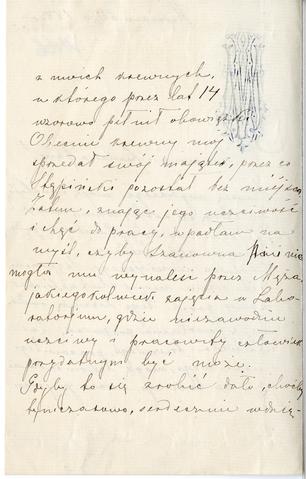 z moich krewnych,
u którego przez lat 14
wzorowo pełnił obowiązki
Obecnie krewny mój
sprzedał swój majątek, przez co
Stępiński pozostał bez miejsca
Zatem, znając jego uczciwość
i chęć do pracy, wpadłam na
myśl, czyby Szanowna Pani nie
mogła mu wynaleść przez Męża
jakiegokolwiek zajęcia w Labo-
ratorjum, gdzie niezawodnie
uczciwy i pracowity człowiek
przydatnym być może.
Gdyby to się zrobić dało, choćby
tymczasowo, serdecznie wdzię-